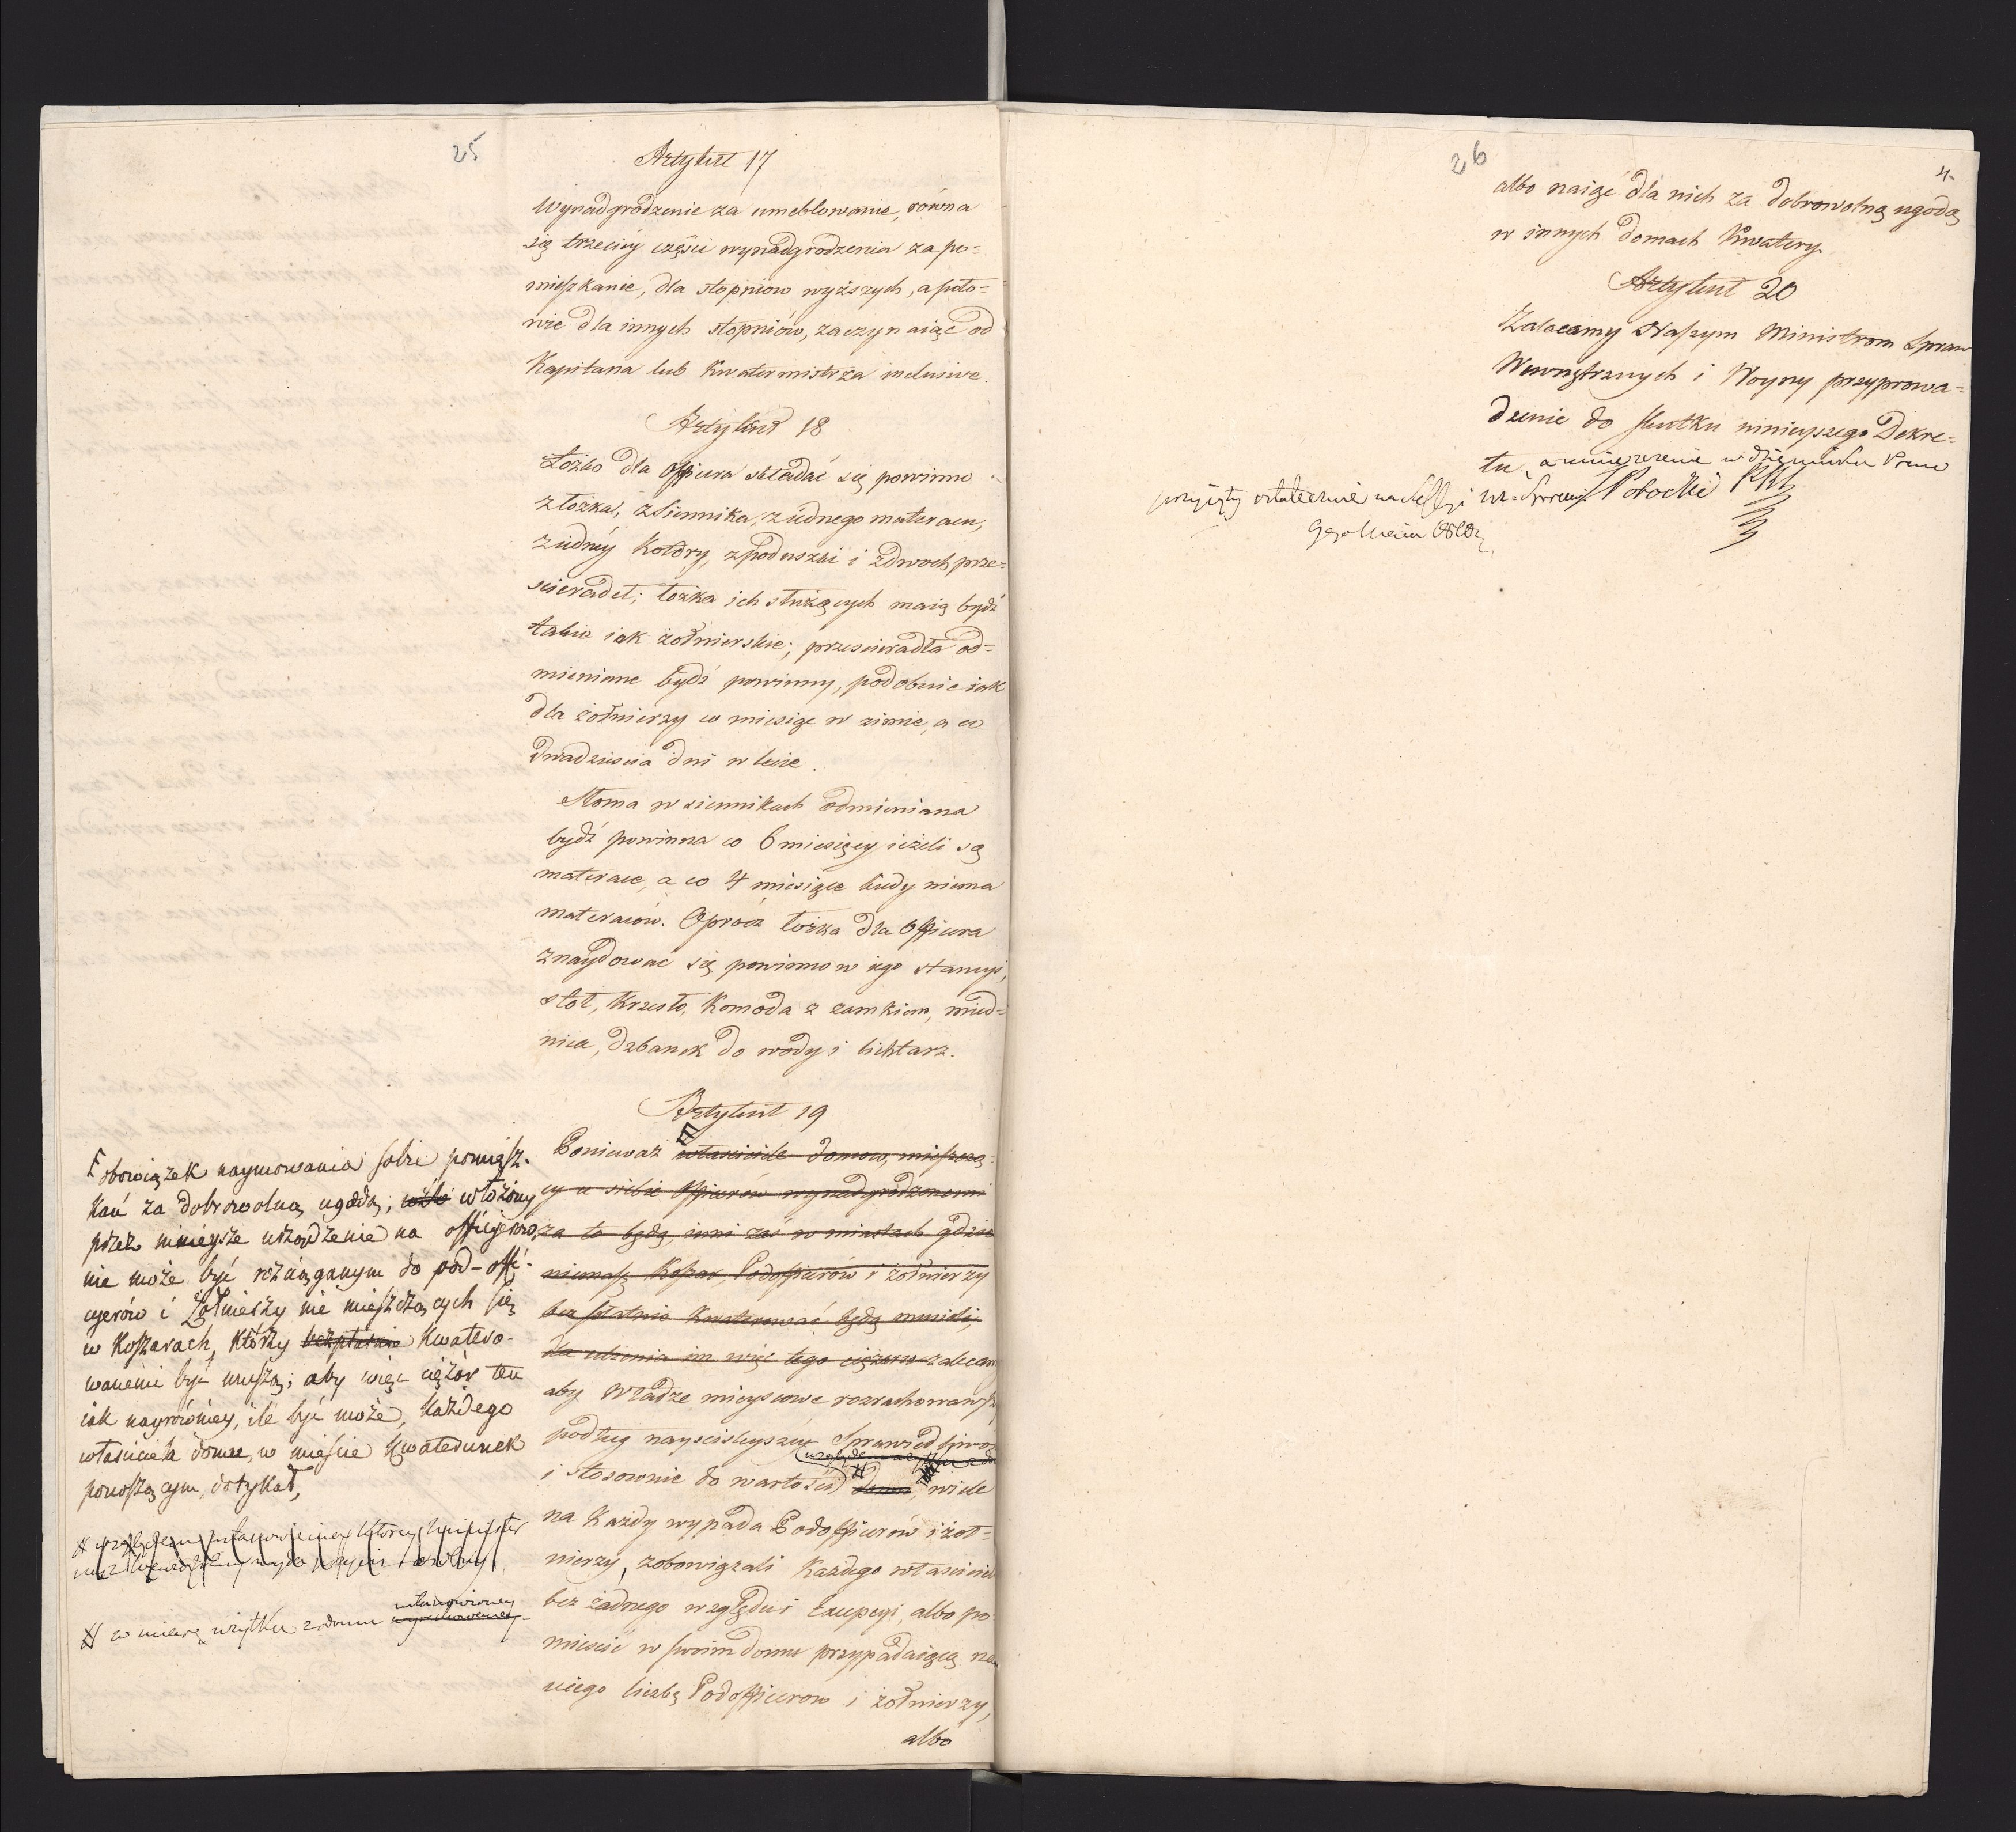 25
Artykuł 17
Wynadgrodzenie za umeblowanie, równa
się trzeciéy części wynadgrodzenia za po=
mieszkanie, dla stopniow wyższych, a poło=
wie dla innych stopniów, zaczynaiąc od
Kapitana lub Kwatermistrza inclusive.
Artykuł 18
Łożko dla Officera składać się powinno
z łożka, z siennika, z iednego materaca,
z iednéy kołdry, z poduszki i z dwoch prze=
scieradeł; łożka ich służących maią bydź
takie iak żołnierskie; przescieradła od=
mieniane bydź powinny, podobnie iak
dla żołnierzy co miesiąc w zimie, a co
dwadziescia dni w lecie.
Słoma w siennikach odmieniana
bydź powinna co 6 miesięcy ieżeli są
materace, a co 4 miesiące kiedy niema
materaców. Oprócz łożka dla Officera
znaydować się powinno w iego stancyi,
stoł, Krzesło, Komoda z zamkiem, mied=
nica, dzbanek do wody i lichtarz.
Artykuł 19
Ponieważ właściciele domow, mieszczą=
cy u siebie Officerów wynadgrodzonemi
za to będą, inni zaś w miastach gdzie
niemasz Koszar, Podofficerów i żołnierzy
bezpłatnie kwaterować będą musieli,
dla ulżenia im więc tego ciężaru zalecam
aby Władze mieyscowe rozrachowawszy
podług nayscisleyszéy Sprawiedliwo
i stosownie do wartości domu, wiele
na każdy wypada Podofficerów i żoł=
nierzy, zobowiązali Każdego właściciel
bez żadnego względu i Excepcyi, albo po
mieścić w swoim domu przypadaiącą na
niego liczbę Podofficerow i żołnierzy,
albo
obowiązek naymowania sobie pomiesz-
kań za dobrowolną ugodą, włożony
przez ninieysze urządzenie na officyerow,
nie może być rozciąganym do pod-offi-
cyerów i Żołnierzy nie mieszczących się
w Koszarach, którzy bezpłatnie Kwatero-
wanemi być muszą; aby więc ciężar ten
iak nayrówniey, ile być może, każdego
właściciela domu, w mieście Kwaterunek
ponoszącym, dotykał,
w miarę użytku z domu
ustanowioney
26
4
albo naiąć dla nich za dobrowolną ugodą
w innych domach Kwatery.
Artykuł 20
Zalecamy Naszym Ministrom Spraw
Wewnętrznych i Woyny przyprowa=
dzenie do skutku ninieyszego Dekre=
tu, a umieszczenie w dzienniku Praw
przyięty ostatecznie na Sessyi
Potocki